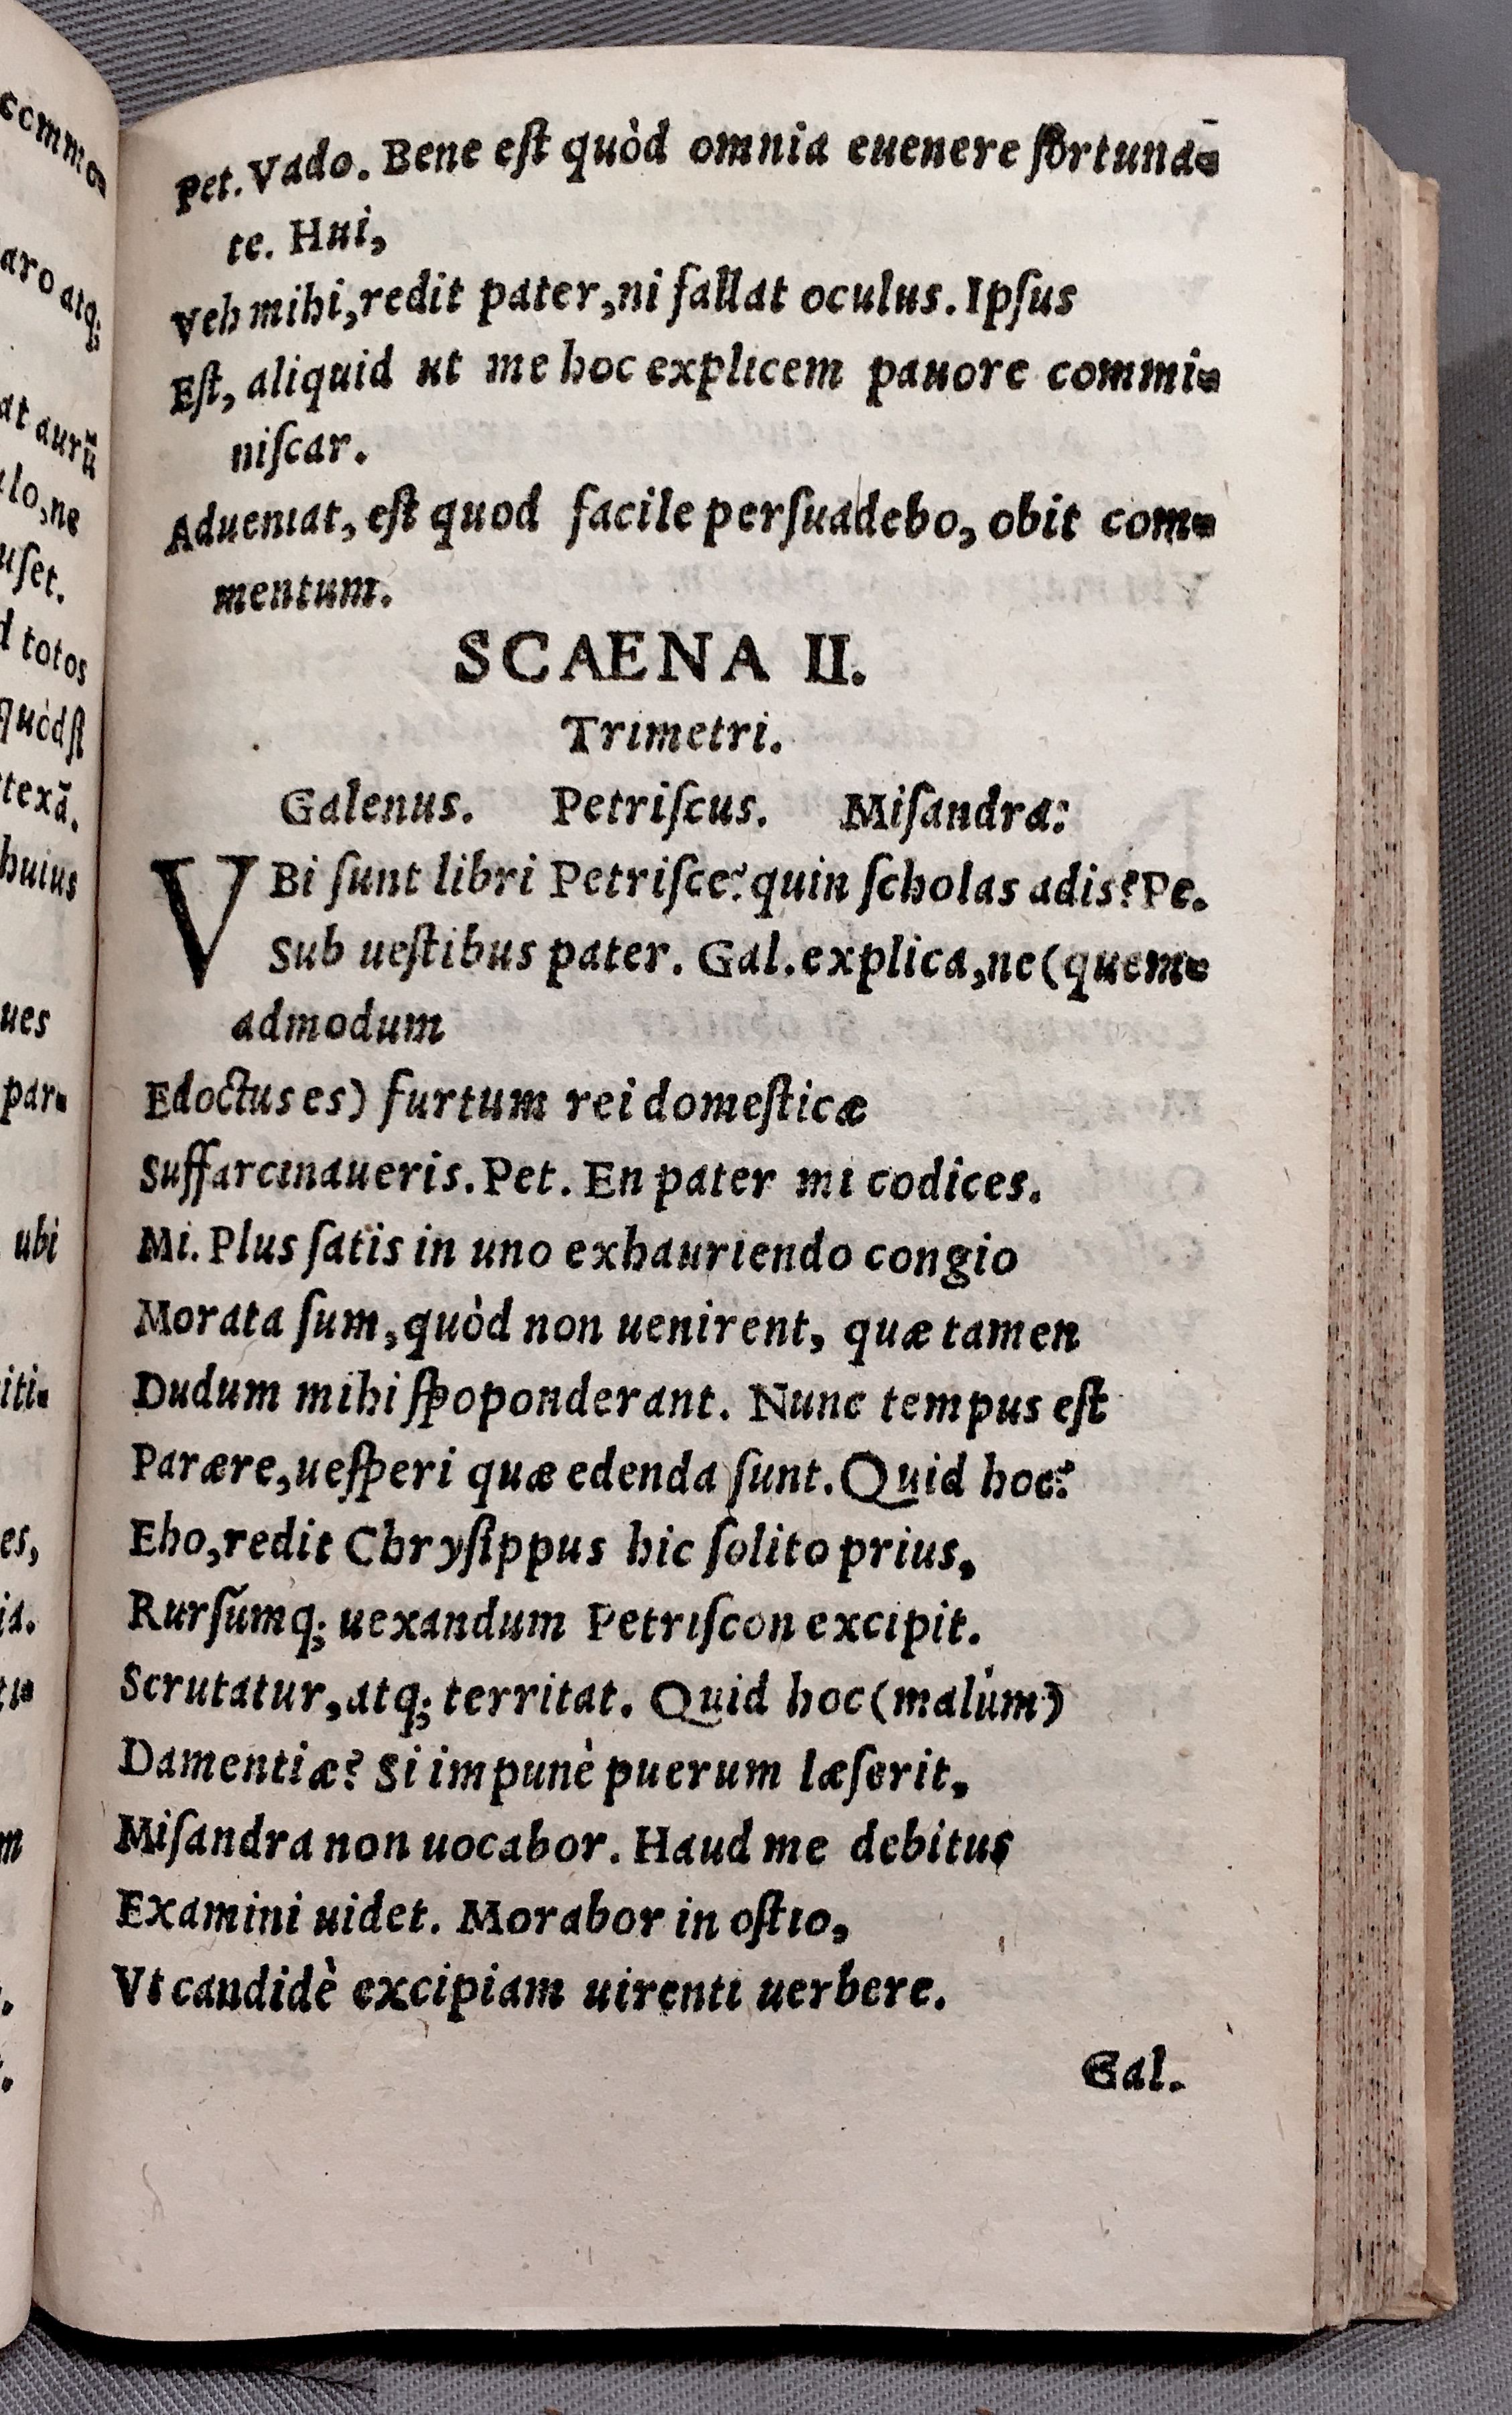 Pet. Vado. Bene eſt quòd omnia euenere fortuna-
te. Hui,
Veh mihi, redit pater, ni fallat oculus. Ipſus
Eſt, aliquid ut me hoc explicem pauore commi-
niſcar.
Adueniat, eſt quod facile perſuadebo, obit com-
mentum.
SCAENA II.
Trimetri.
Galenus. Petriſcus. Miſandra:
VBi ſunt libri Petriſce? quin ſcholas adis? Pe.
Sub ueſtibus pater. Gal. explica, ne (quem-
admodum
Edoctus es) furtum rei domeſticæ
Suffarcinaueris. Pet. En pater mi codices.
Mi. Plus ſatis in uno exhauriendo congio
Morata ſum, quòd non uenirent, quæ tamen
Dudum mihi ſpoponderant. Nunc tempus eſt
Parære, ueſperi quæ edenda ſunt. Quid hoc?
Eho, redit Chryſippus hic ſolito prius,
Rurſúmq; uexandum Petriſcon excipit.
Scrutatur, atq; territat. Quid hoc (malùm)
Damentiæ? Si impunè puerum læſerit,
Miſandra non uocabor. Haud me debitus
Examini uidet. Morabor in oſtio,
Vt candidè excipiam uirenti uerbere.
Gal.
commen
aro atq;
at aurũ
lo, ne
uſet.
d totos
quòdſt
texã.
huius
ues
par-
ubi
iti-
es,